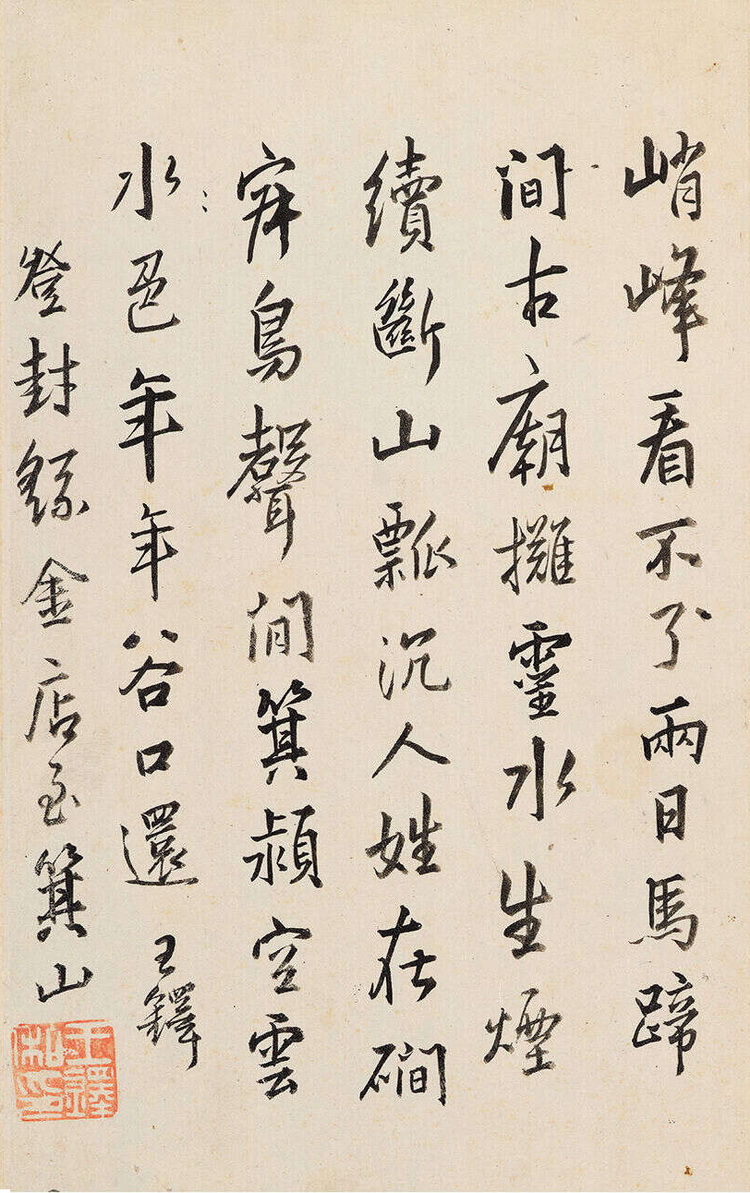 峭峰看不了兩日馬蹄
間古廟攤靈水生煙
續斷山瓢沉人姓在磵
鳥聲閒箕潁空雲
水色年年谷口還 王鐸
登封繇金店至箕山
王鐸私印